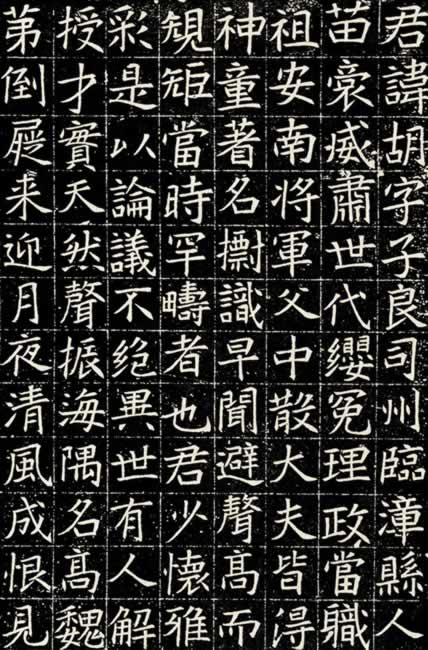 君諱胡字子良司州臨漳縣人
苗裔威肅世代纓冕理政當職
祖安南将軍父中散大夫皆得
神童著名識早聞避聲髙而
規矩當時罕疇者也君少懷雅
彩是以論議不絶異世有人解
授才實天然聲振海隅名髙魏
苐倒屣来迎月夜清風成恨見